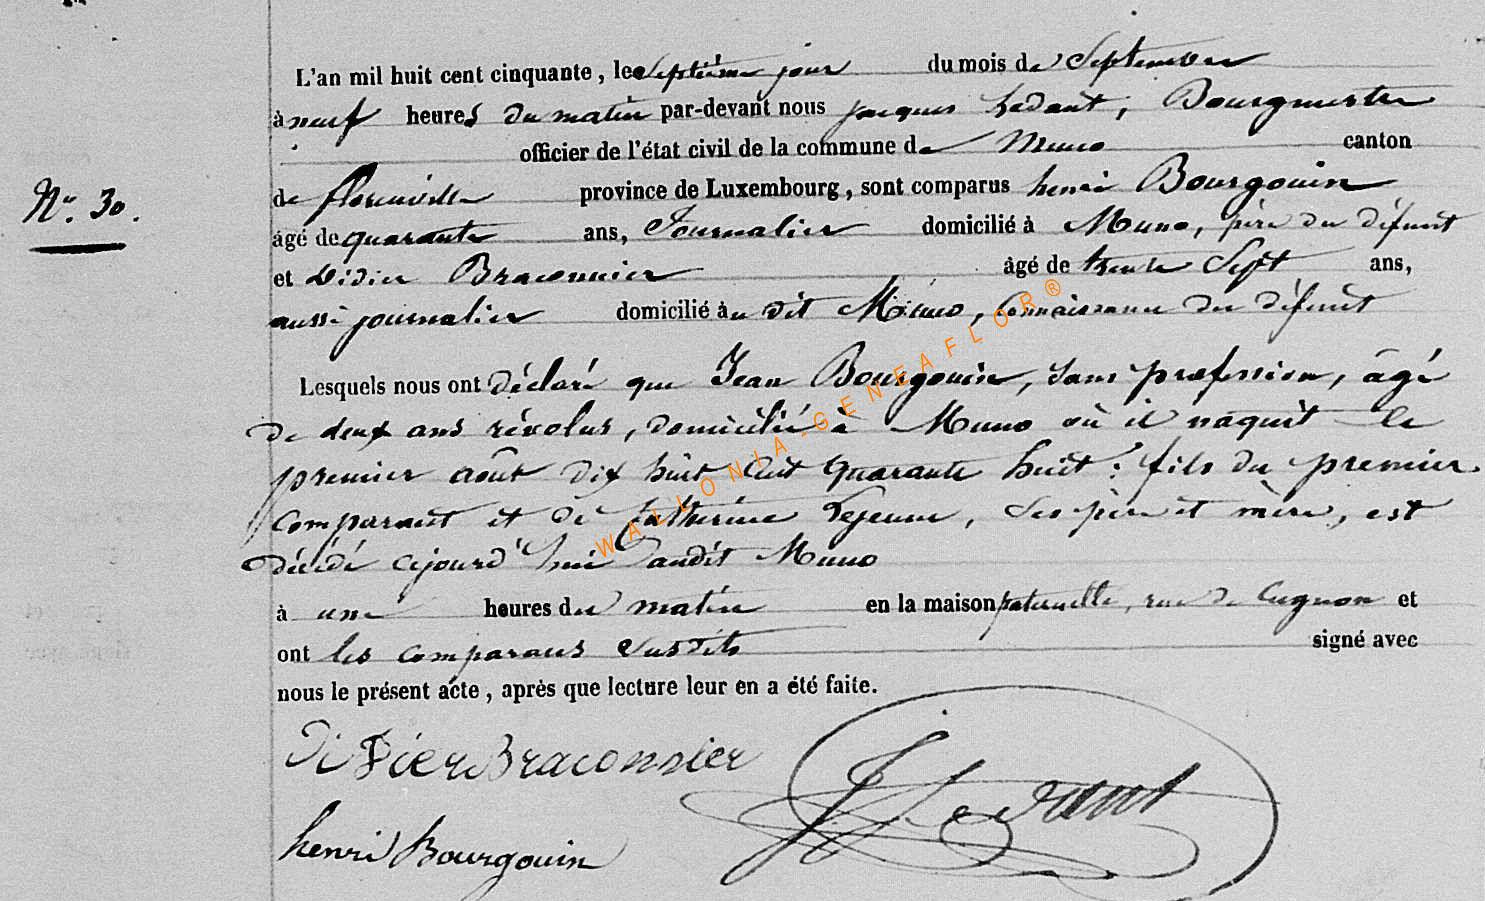 L'an mil huit cent cinquante, le septième jour du mois de Septembre
à neuf heures du matin par-devant nous jacques Ledant, Bourgmestre
officier de l'état civil de la commune de Muno canton
de florenville province de Luxembourg, sont comparus henri Bourgouin
N° 30.
âgé de quarante ans, Journalier domicilié à Muno, père du défunt
et Didier Braconnier âgé de trente Sept ans,
aussi journalier domicilié au dit Muno, Connaissance du défunt
Lesquels nous ont déclaré que Jean Bourgouin, sans profession, âgé
de deux ans révolus, domicilié à Muno où il naquit le
premier août dix huit Cent quarante huit : fils du premier
Comparant et de Catherine Lejeune, Ses père et mère, est
décédé cejourd'hui audit Muno
à une heures du matin en la maison paternelle, rue de Cugnon et
ont les comparans susdits signé avec
nous le présent acte, après que lecture leur en a été faite.
Didier Braconnier
J Ledant
henri Bourgouin
WALLONIA-GENEAFLOR®